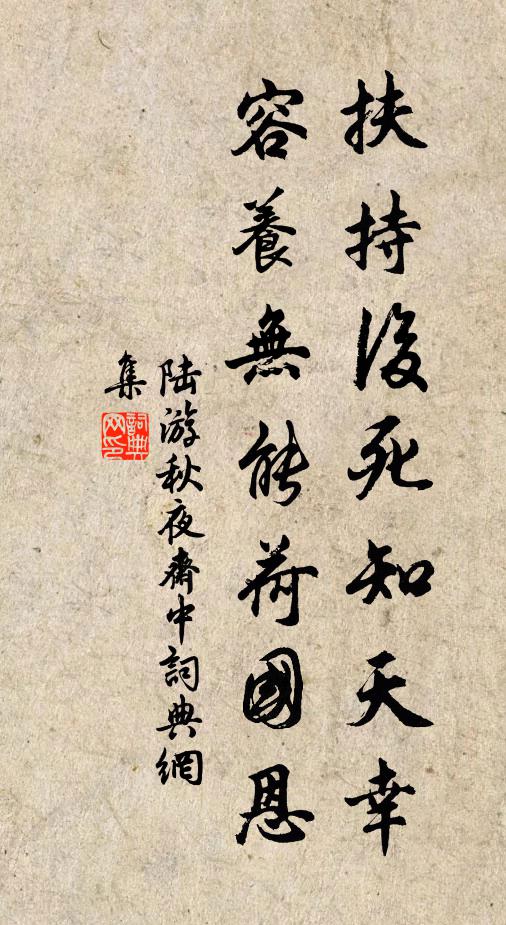 扶持後死知天幸
容養無能荷國恩
陆游秋夜齋中詞典網
集
詞典
网印